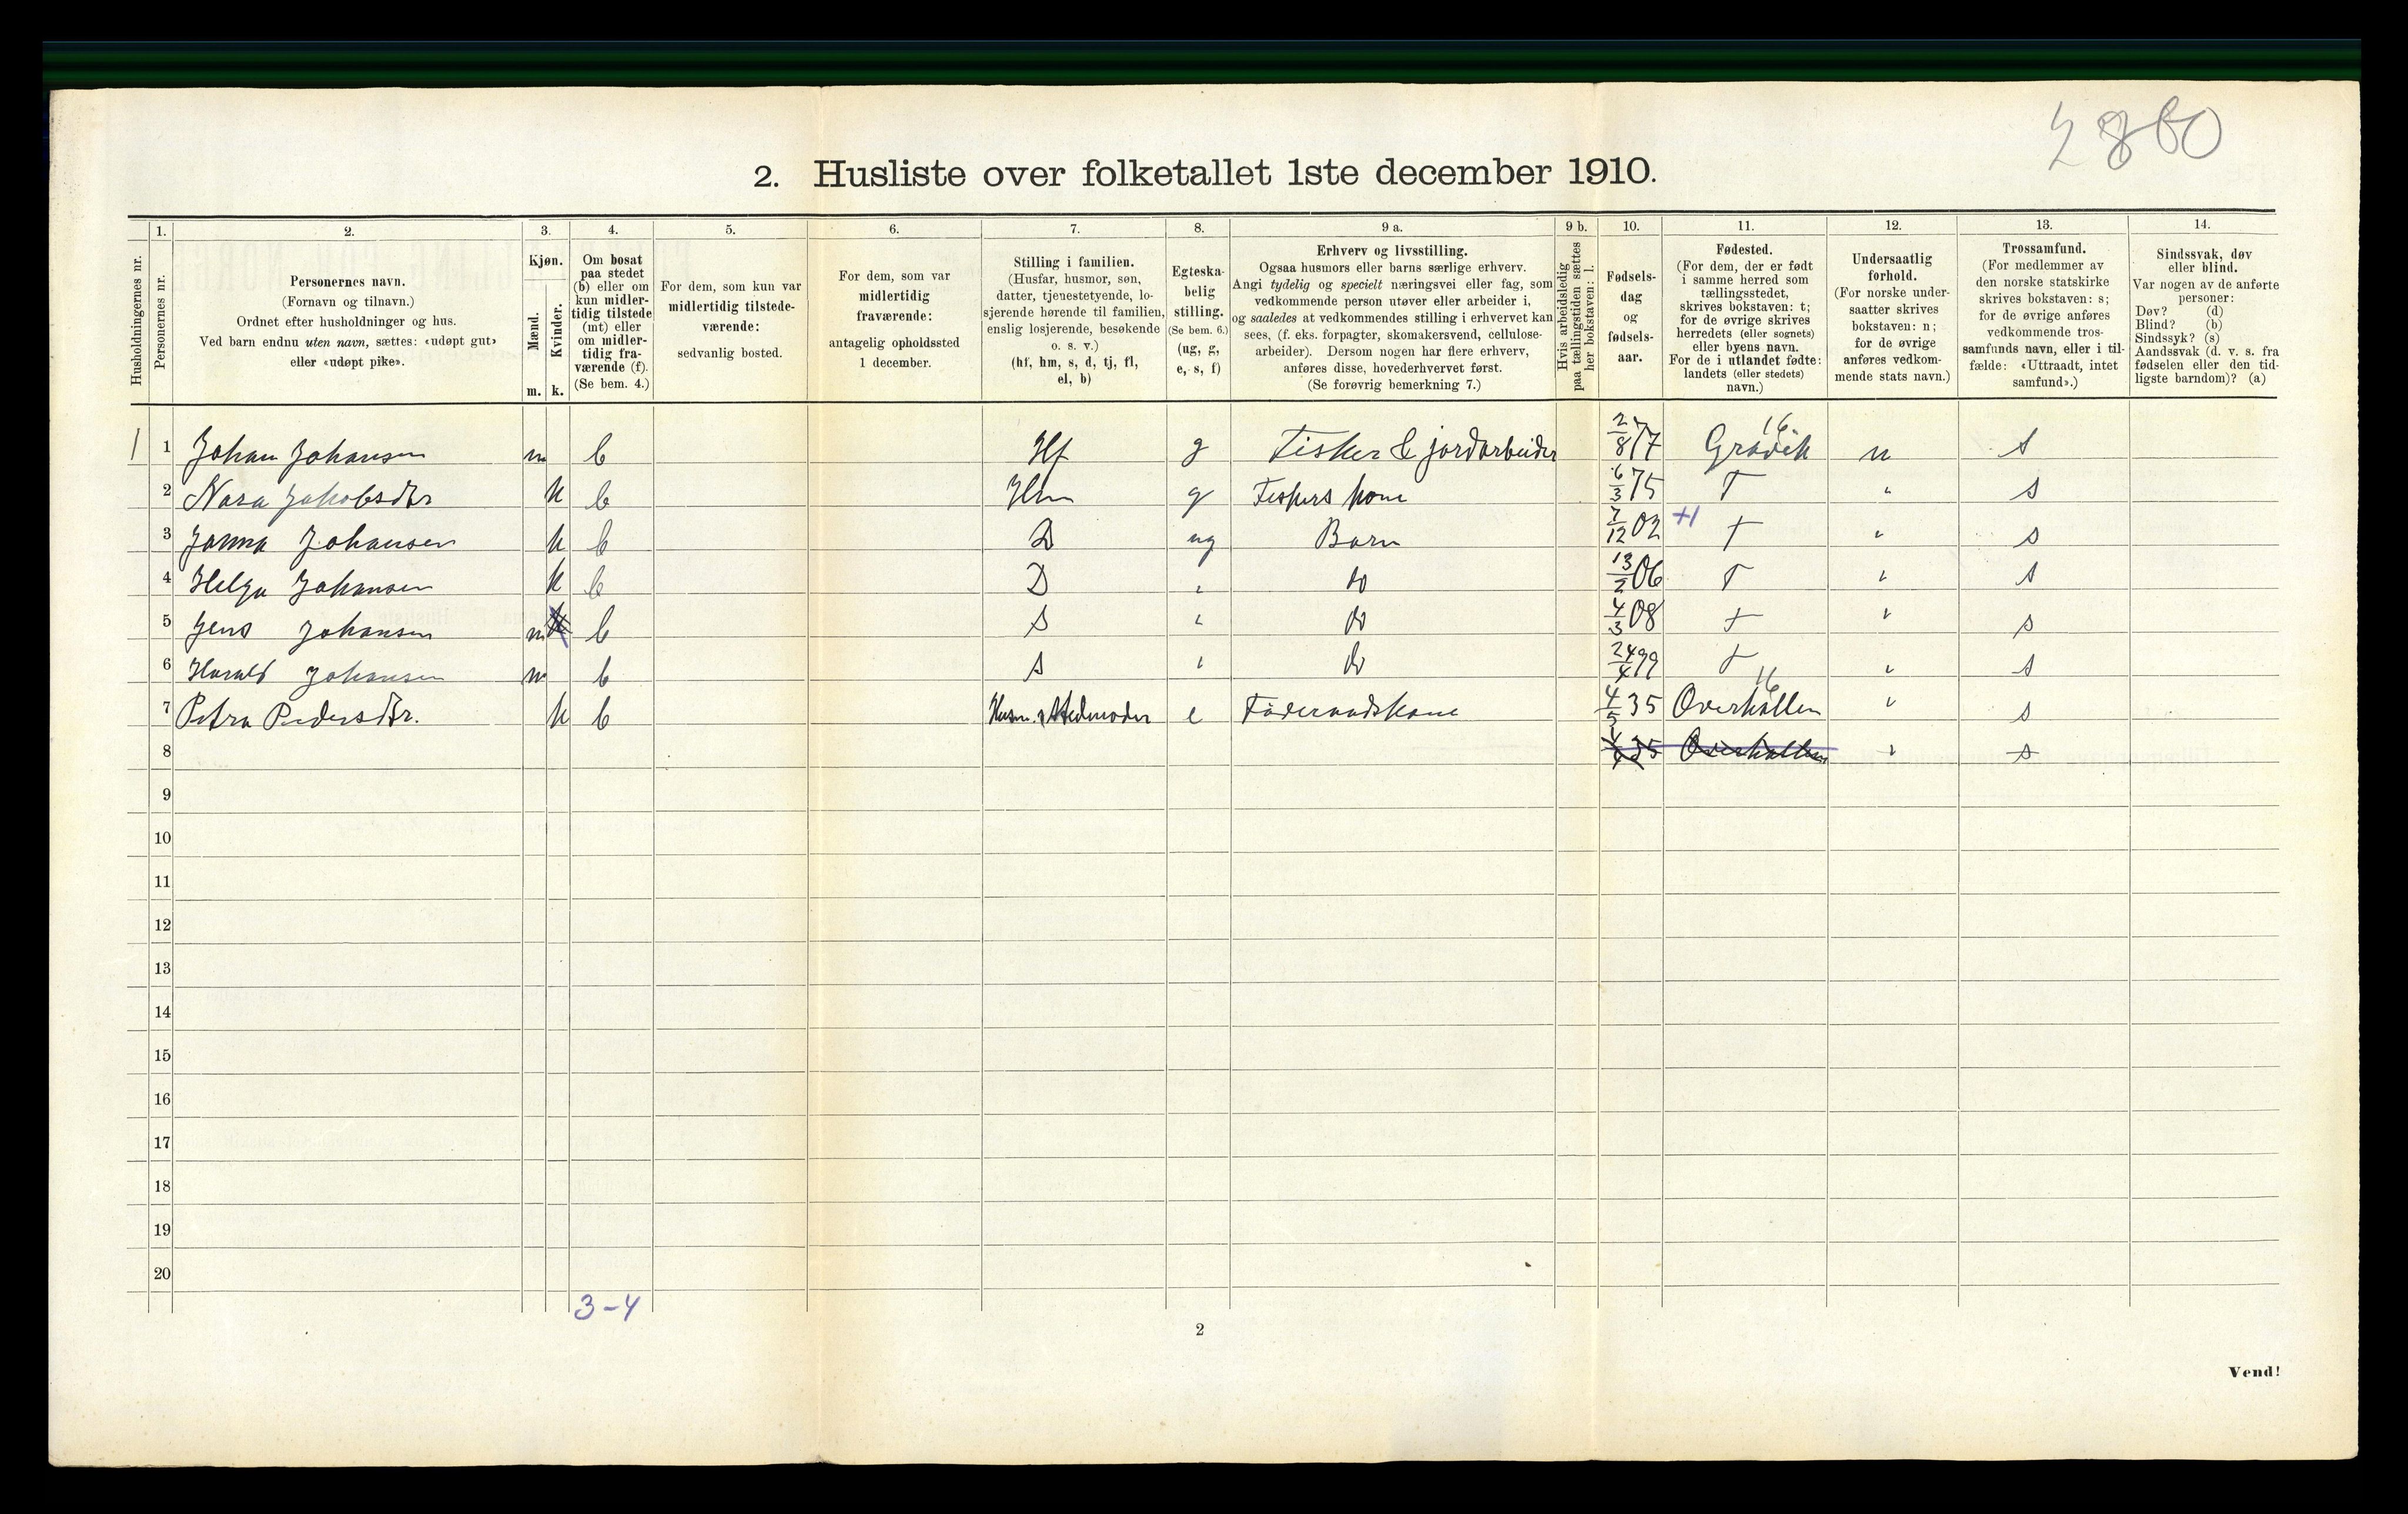 2860
2. Husliste over folketallet 1ste december 1910.
Husholdningernes nr.
1.
Personernes nr.
2.
Personernes navn.
(Fornavn og tilnavn.)
Ordnet efter husholdninger og hus.
Ved barn endnu uten navn, sættes: «udøpt gut»
eller «udøpt pike».
3.
Kjøn.
Mænd.
Kvinder.
m. k.
4.
Om bosat
paa stedet
(b) eller om
kun midler-
tidig tilstede
(mt) eller
om midler-
tidig fra-
værende (f).
(Se bem. 4.)
5.
For dem, som kun var
midlertidig tilstede-
værende:
sedvanlig bosted.
6.
For dem, som var
midlertidig
fraværende:
antagelig opholdssted
1 december.
7.
Stilling i familien.
(Husfar, husmor, søn,
datter, tjenestetyende, lo-
sjerende hørende til familien,
enslig losjerende, besøkende
o. s. v.)
(hf, hm, s, d, tj, fl,
el, b)
8.
Egteska-
belig
stilling.
(Se bem. 6.)
(ug, g,
e, s, f)
9 a.
Erhverv og livsstilling.
Ogsaa husmors eller barns særlige erhverv.
Angi tydelig og specielt næringsvei eller fag, som
vedkommende person utøver eller arbeider i,
og saaledes at vedkommendes stilling i erhvervet kan
sees, (f. eks. forpagter, skomakersvend, cellulose-
arbeider). Dersom nogen har flere erhverv,
anføres disse, hovederhvervet først.
(Se forøvrig bemerkning 7.)
9 b.
Hvis arbeidsledig
paa tællingstiden sættes
her bokstaven: l.
10.
Fødsels-
dag
og
fødsels-
aar.
11.
Fødested.
(For dem, der er født
i samme herred som
tællingsstedet,
skrives bokstaven: t;
for de øvrige skrives
herredets (eller sognets)
eller byens navn.
For de i utlandet fødte:
landets (eller stedets)
navn.)
12.
Undersaatlig
forhold.
(For norske under-
saatter skrives
bokstaven: n;
for de øvrige
anføres vedkom-
mende stats navn.)
13.
Trossamfund.
(For medlemmer av
den norske statskirke
skrives bokstaven: s;
for de øvrige anføres
vedkommende tros-
samfunds navn, eller i til-
fælde: «Uttraadt, intet
samfund».)
14.
Sindssvak, døv
eller blind.
Var nogen av de anførte
personer:
Døv? (d)
Blind? (b)
Sindssyk? (s)
Aandssvak (d. v. s. fra
fødselen eller den tid-
ligste barndom)? (a)
16
1 1 Johan Johansen m b Hf g Fisker & jordarbeider 2/8 77 Gravik n s
2 Nara Jakobsdtr k b Hm g Fiskers kone 6/3 75 T " s
3 Janna Johansen k b D ug Barn 7/12 02 +1 T " s
4 Helga Johansen k b D " do 13/2 06 T " s
5 Jens Johansen m b S " do 4/3 08 T " s
6 Harald Johansen m b S " do 24/4 99 T " s
16
7 Petra Pedersdtr. k b Husm. Stedmoder e Føderaadskone 4/5 35 Overhallen " s
8 35 Overhallen " s
9
10
11
12
13
14
15
16
17
18
19
20
3-4
2
Vend!